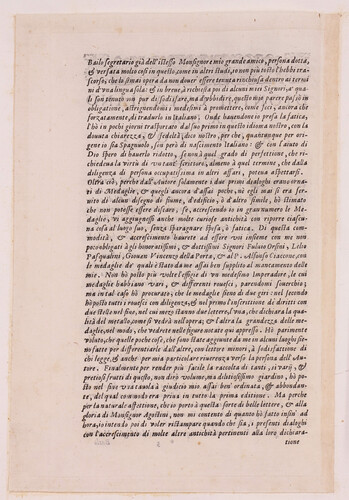 Bailo segretario già dell'istesso Monsignore mio grande amico, persona dotta,
& versata molto così in questo, come in altri studi, io non più tosto l'hebbe tra-
scorso, che lo stimai opera da non douer' essere tenuta rinchiusa dentro ai termi
ni d'vna lingua sola: & in breue, richiesto poi di alcuni miei Signori, à qua-
li son tenuto non pur di sodisfare, ma d'ubbidire, questo mio parere passò in
obligatione, astringendomi i medesimi à promettere, come feci, ancora che
forzatamente, di tradurlo in Italiano; Onde hauendone io presa la fatica,
l'hò in pochi giorni trasportato dal suo primo in questo idioma nostro, con la
douuta chiarezza, & fedeltà, dico nostro, perche, quantunque per ori-
gente io sia Spagnuolo, son però di nascimento Italiano: & con l'aiuto di
Dio spero di hauerlo ridotto, se non à quel grado di perfettione, che ri-
chiedeua la virtù di vn tant'scrittore, almeno à quel termine, che dalla
diligenza di persona occupatissima in altri affari, poteua aspettarsi.
Oltra ciò, perche dall'Autore solamente i due primi dialoghi erano orna-
ti di Medaglie, & quegli ancora d'assai poche, nè egli mai si era ser-
uito di alcun disegno di fiume, d'edificio, ò d'altro simile, hò stimato
che non potesse essere discaro, se, accrescendo io in gran numero le Meda-
glie, vi aggiungessi anche molte curiose antichità con riporre ciascu-
na cosa al luogo suo, senza sparagnare spesa, ò fatica. Di questa com-
modità, & accrescimento haurete ad essere voi insieme con me non
poco obligati agli honoratissimi, & dottissimi Signori Fuluio Orsini, Lelio
Pasqualini, Giouan Vincenzo della Porta, & al P. Alfonso Ciaccone, con
le medaglie de' quali è stato da me assai ben supplito al mancamento delle
mie. Non hò posto più volte l'effigie di vn medesimo Imperadore, le cui
medaglie habbiano varij, & differenti rouesci, parendomi souerchio;
ma in tal caso hò procurato, che le medaglie siano di due giri: nel secondo
hò posto tutti i rouesci con diligenza, & nel primo l'inscrittione de' diritti con
due stelle nel fino, nel cui mezo stanno due lettere, l'vna, che dichiara la qua-
lità del metallo, come si vedrà nell'opera; & l'altra la grandezza delle me-
daglie, nel modo, che vedrete nelle figure notate qui appresso. Hò parimente
voluto, che quelle poche cose, che sono state aggiunte da me in alcuni luoghi sie-
no fatte per differentiarle dall'altre, con lettere minori, à sodisfattione di
chi legge, & anche per mia particolare riuerenza verso la persona dell'Au-
tore. Finalmente per render più facile la raccolta di tanti, sì varij, &
pretiosi frutti di questo, non dirò volume, ma diletteuolissimo giardino, hò po-
sto nel fine vna tauola à giudicio mio assai ben' ordinata, & abbondan-
te, del qual commodo era priua in tutto la prima editione. Ma perche
per la naturale affettione, che io porto à questa sorte di belle lettere, & alla
gloria di Monsignor Agostini, non mi contento di quanto hò fatto insin' ad
hora, io intendo poi di voler ristampare quando che sia, i presenti dialoghi
con l'accrescimento di molte altre antichità pertinenti alla loro dichiara-
tione